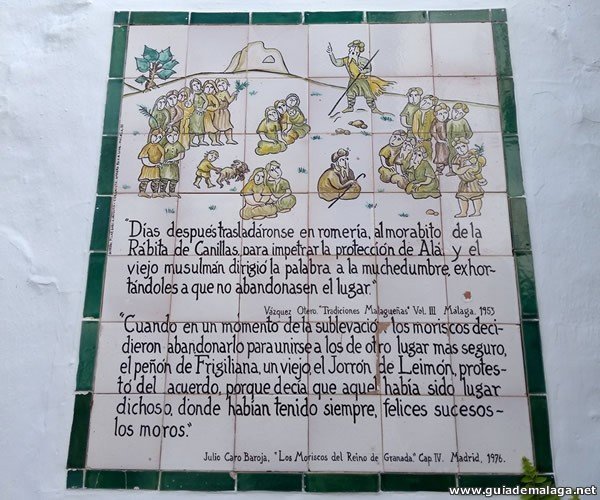 "Días despues trasladáronse en romería, al morabito de la
Rábita de Canillas, para impetrar la protección de Alá y el
viejo musulmán dirigió la palabra a la muchedumbre, exhor-
tándoles a que no abandonasen el lugar."
Vázquez Otero. "Tradiciones Malagueñas" Vol. III Málaga. 1953
"Cuando en un momento de la sublevació los moriscos deci-
dieron abandonarlo para unirse a los de otro lugar mas seguro,
el peñón de Frigiliana, un viejo, el Jorrón de Leimón, protes-
tó del acuerdo, porque decía que aquel había sido lugar
dichoso, donde habían tenido siempre, felices sucesos-
los moros."
Julio Caro Baroja, "Los Moriscos del Reino de Granada." Cap. IV. Madrid, 1976.
www.guiademalaga.net